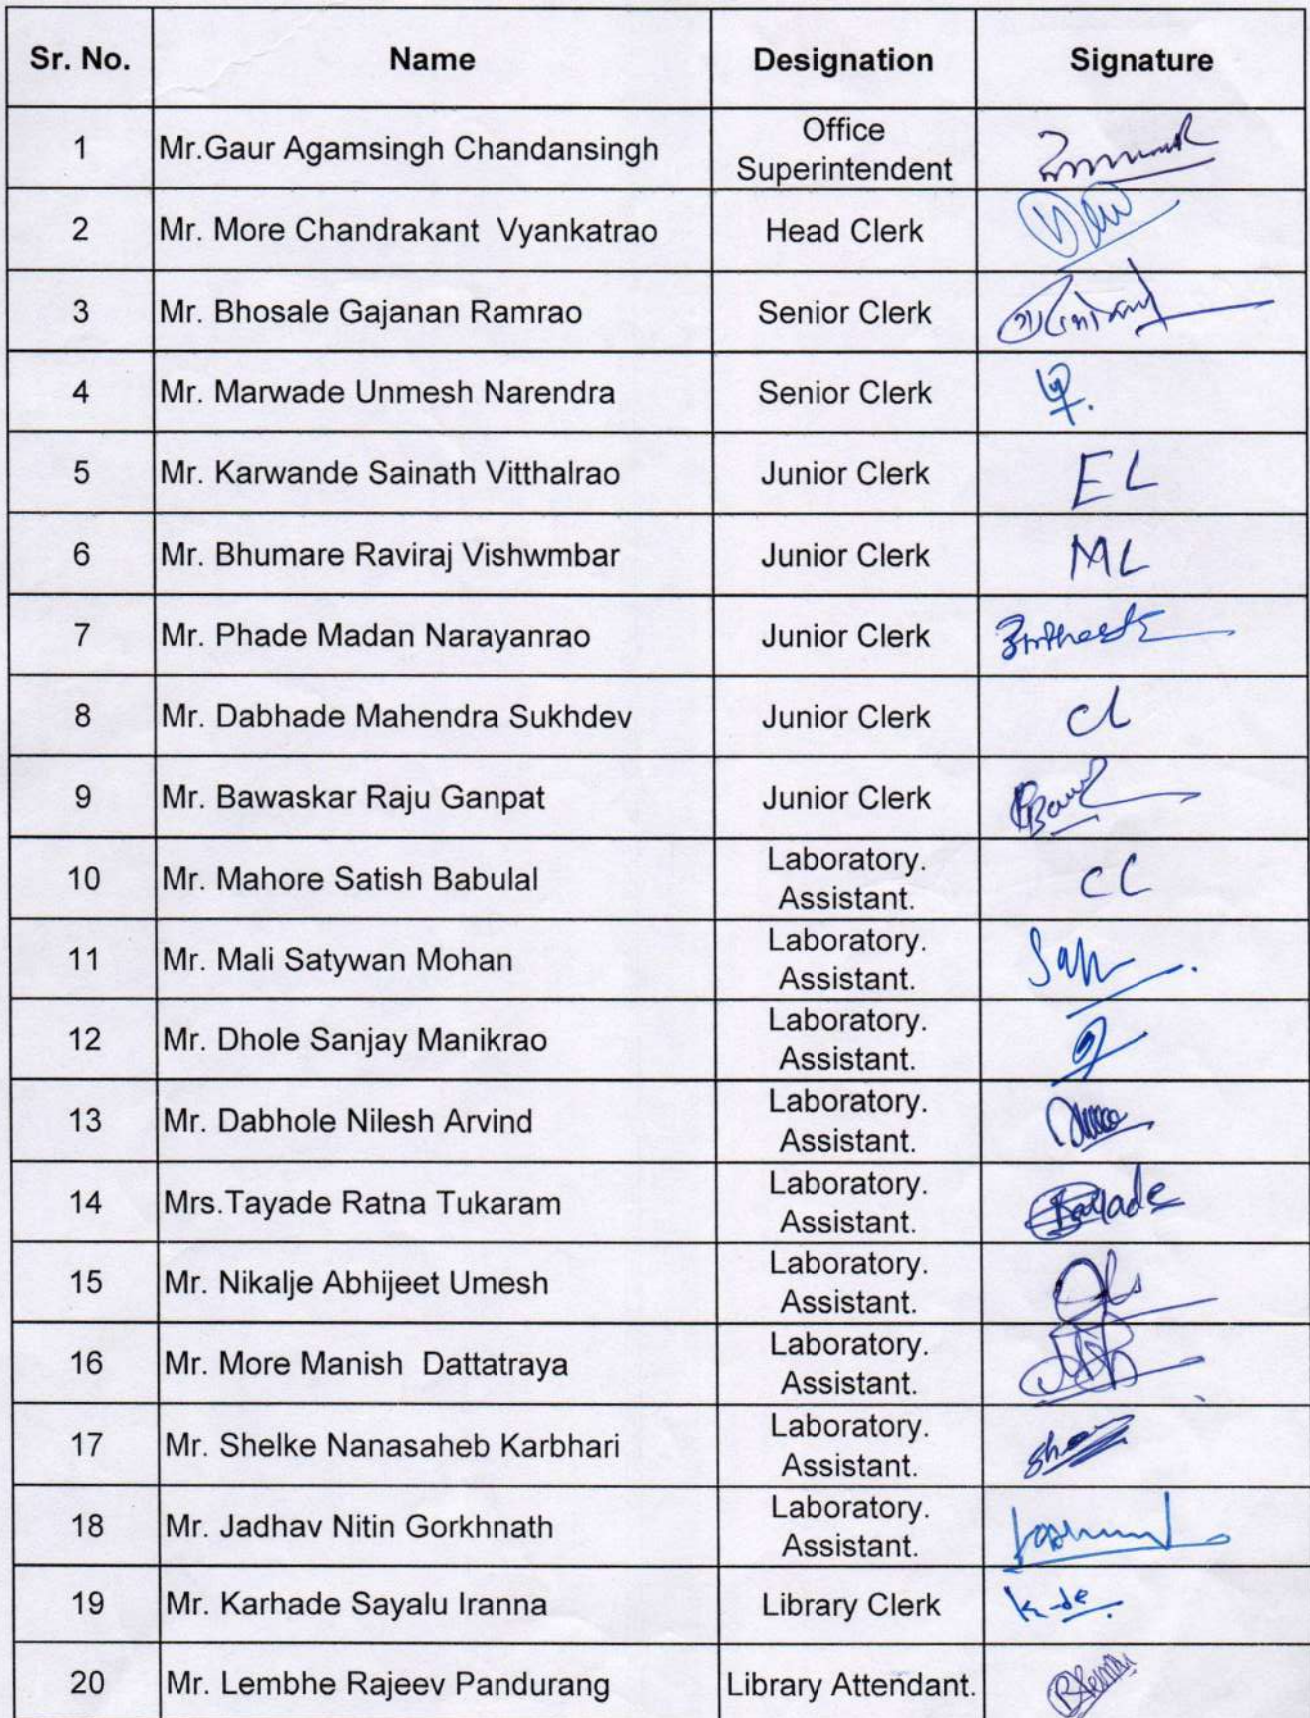 Sr. No. Name Designation Signature
1 Mr.Gaur Agamsingh Chandansingh Office
Superintendent
2 Mr. More Chandrakant Vyankatrao Head Clerk
3 Mr. Bhosale Gajanan Ramrao Senior Clerk
4 Mr. Marwade Unmesh Narendra Senior Clerk
5 Mr. Karwande Sainath Vitthalrao Junior Clerk EL
6 Mr. Bhumare Raviraj Vishwmbar Junior Clerk ML
7 Mr. Phade Madan Narayanrao Junior Clerk
8 Mr. Dabhade Mahendra Sukhdev Junior Clerk CL
9 Mr. Bawaskar Raju Ganpat Junior Clerk
10 Mr. Mahore Satish Babulal Laboratory. CL
Assistant.
11 Mr. Mali Satywan Mohan Laboratory.
Assistant.
12 Mr. Dhole Sanjay Manikrao Laboratory.
Assistant.
13 Mr. Dabhole Nilesh Arvind Laboratory.
Assistant.
14 Mrs.Tayade Ratna Tukaram Laboratory.
Assistant.
15 Mr. Nikalje Abhijeet Umesh Laboratory.
Assistant.
16 Mr. More Manish Dattatraya Laboratory.
Assistant.
17 Mr. Shelke Nanasaheb Karbhari Laboratory.
Assistant.
18 Mr. Jadhav Nitin Gorkhnath Laboratory.
Assistant.
19 Mr. Karhade Sayalu Iranna Library Clerk K-de.
20 Mr. Lembhe Rajeev Pandurang Library Attendant.